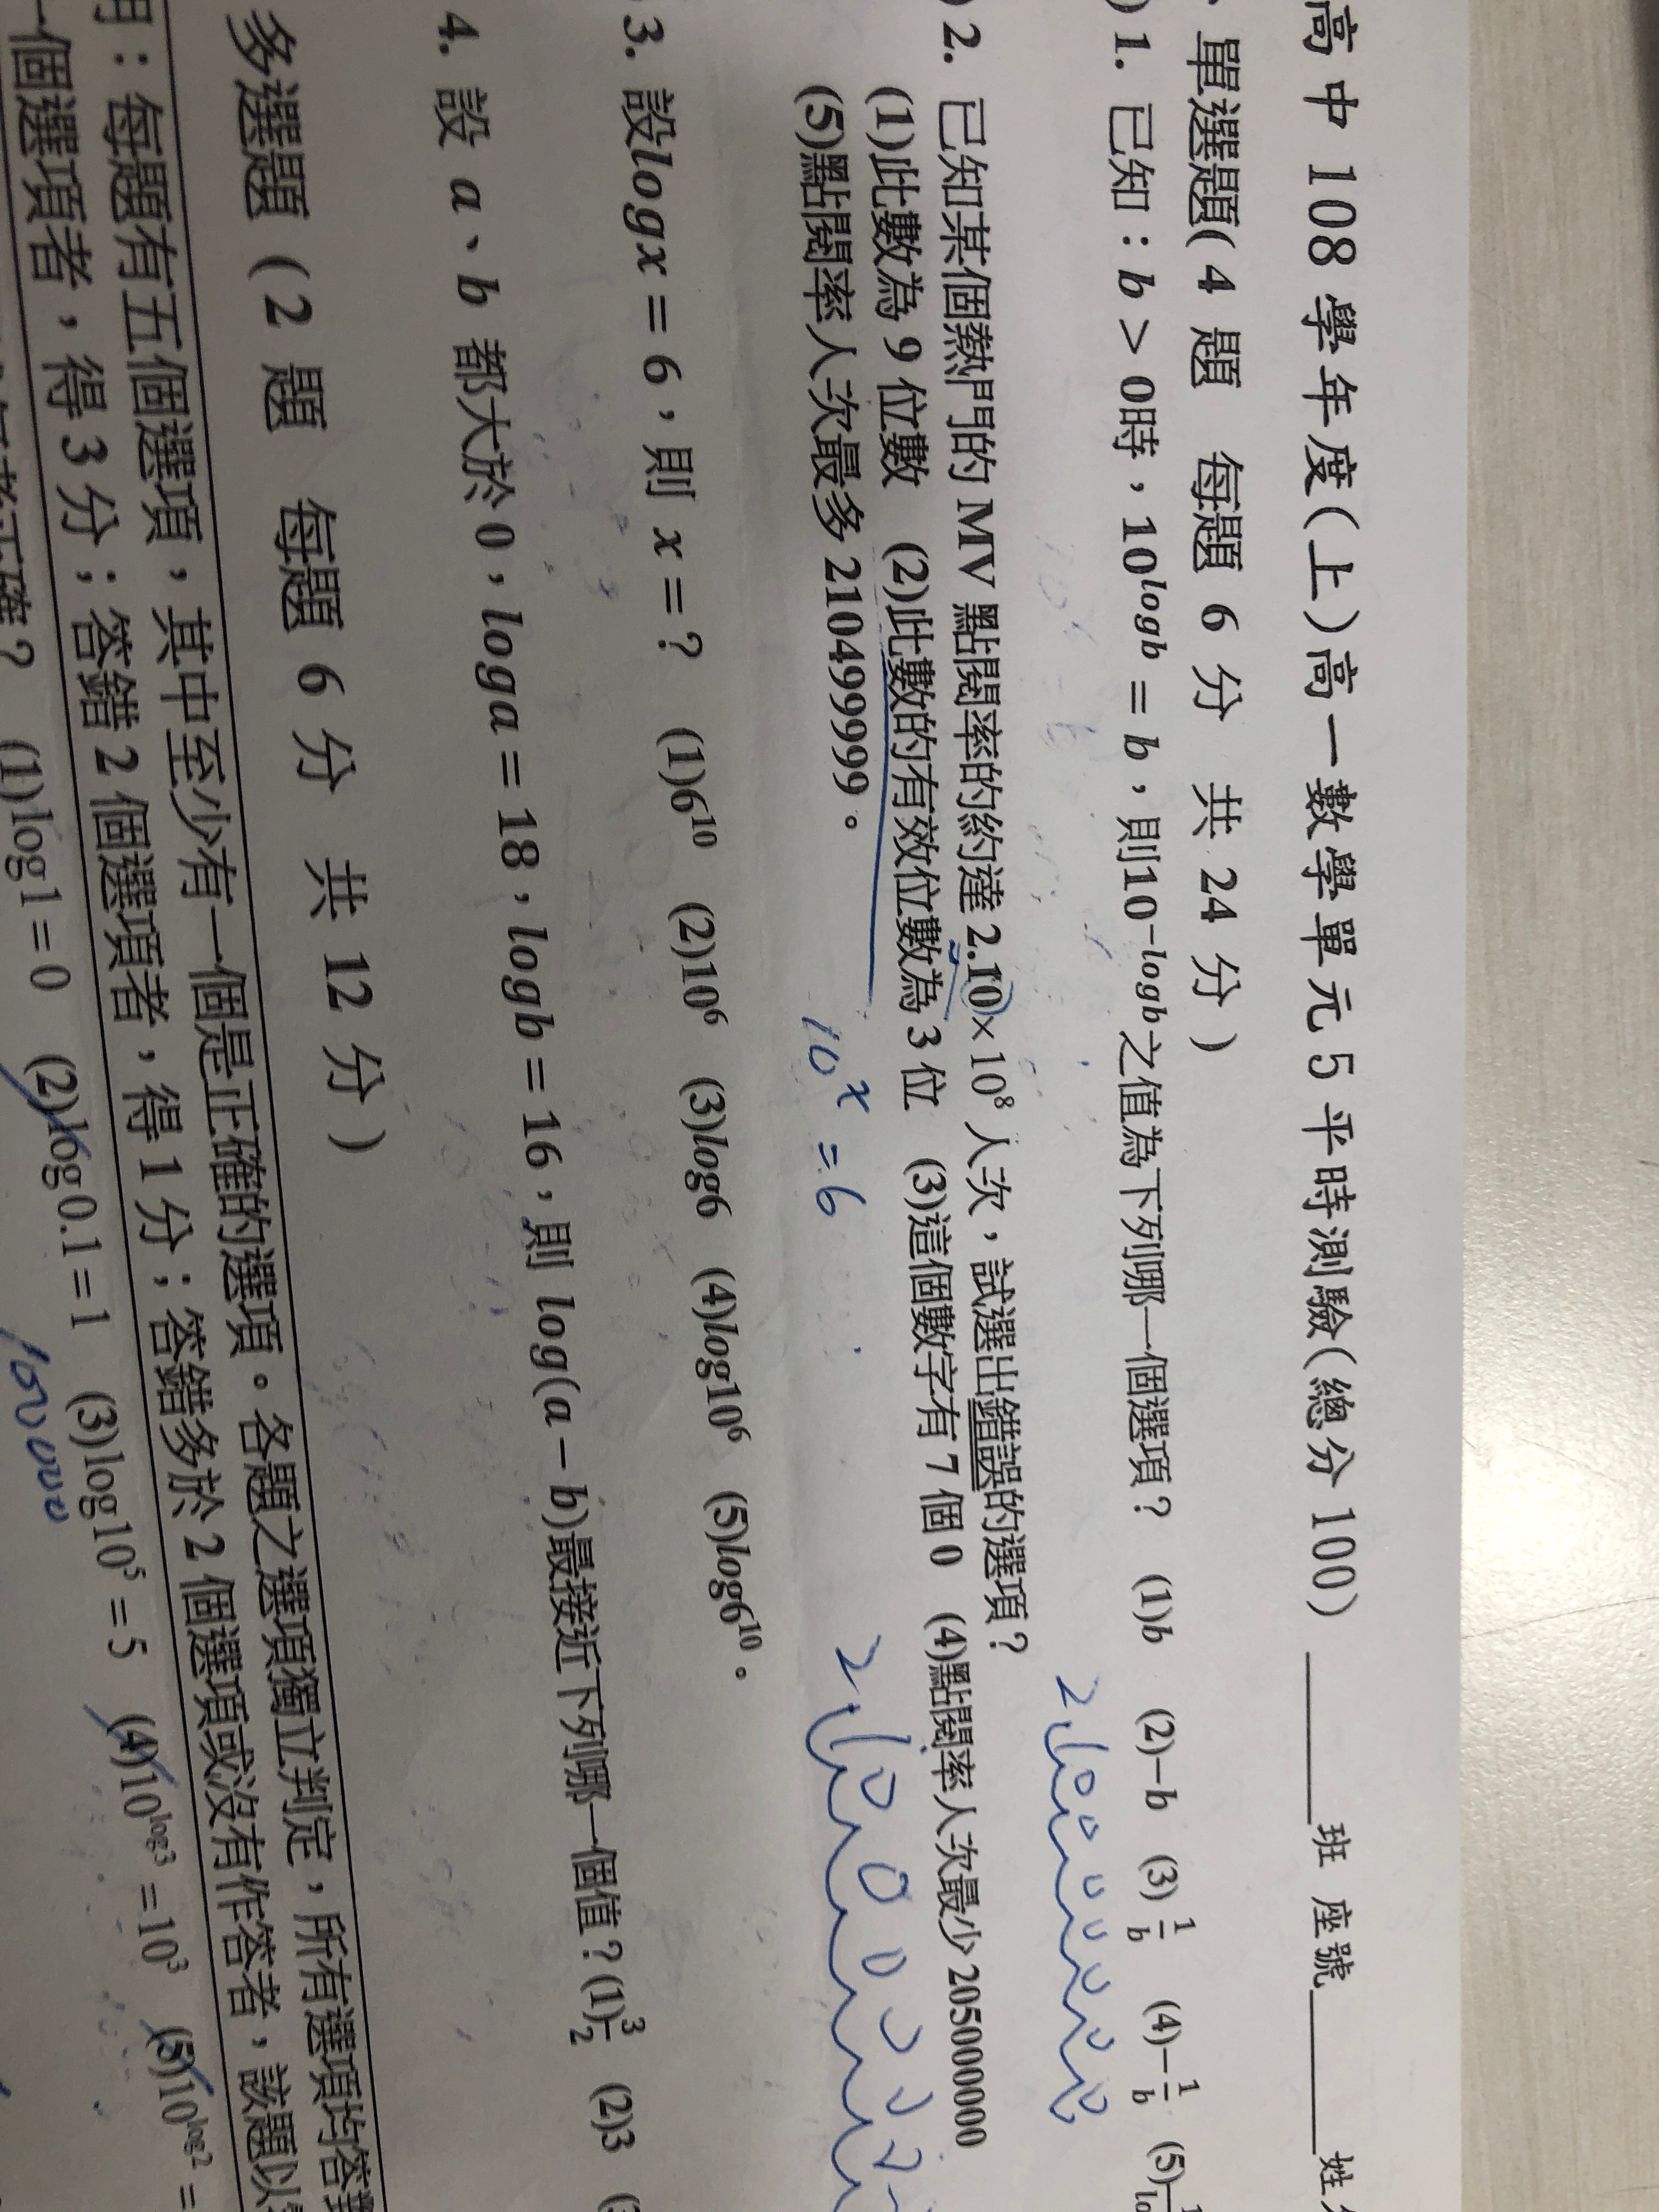 高中 108 學年度(上)高一數學單元 5 平時測驗(總分 100) ______班 座號______姓
、單選題( 4 題 每題 6 分 共 24 分 )
) 1. 已知：b > 0時，10^{logb} = b，則10^{-logb}之值為下列哪一個選項？ (1)b (2)−b (3)1/b (4)−1/b (5)
2100000000
) 2. 已知某個熱門的 MV 點閱率的約達 2.10×10⁸ 人次，試選出錯誤的選項？
(1)此數為 9 位數 (2)此數的有效位數為 3 位 (3)這個數字有 7 個 0 (4)點閱率人次最少 205000000
(5)點閱率人次最多 210499999。
10^x = 6
3. 設logx = 6，則 x =？ (1)6¹⁰ (2)10⁶ (3)log6 (4)log10⁶ (5)log6¹⁰。
4. 設 a、b 都大於 0，loga = 18，logb = 16，則 log(a − b)最接近下列哪一個值？(1)3/2 (2)3
多選題 (2 題 每題 6 分 共 12 分 )
：每題有五個選項，其中至少有一個是正確的選項。各題之選項獨立判定，所有選項均答對
一個選項者，得 3 分；答錯 2 個選項者，得 1 分；答錯多於 2 個選項或沒有作答者，該題以
正確？ (1)log1 = 0 (2)log0.1 = 1 (3)log10⁵ = 5 (4)10^{log3} = 10³ (5)10^{log2} =